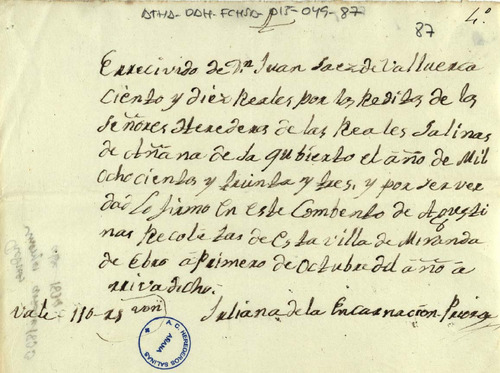 ATHA-DAH-FCHSA-015-049-87
87
4.º
Errecivido de Dn Juan Saez de Valluerca
Ciento y diez Reales por los Reditos de los
Señores Herederos de las Reales Salinas
de Añana de la qubierto el año de Mil
ochocientos y trinta y tres, y por ser ver
dad lo firmo en este Combento de Agusti
nas Recoletas de Esta Villa de Miranda
de Ebro a Primero de Octubre del año a
rriva dicho.
Vale 110 rs von
Juliana de la Encarnacion Priora
A. C. HEREDEROS SALINAS
AÑANA